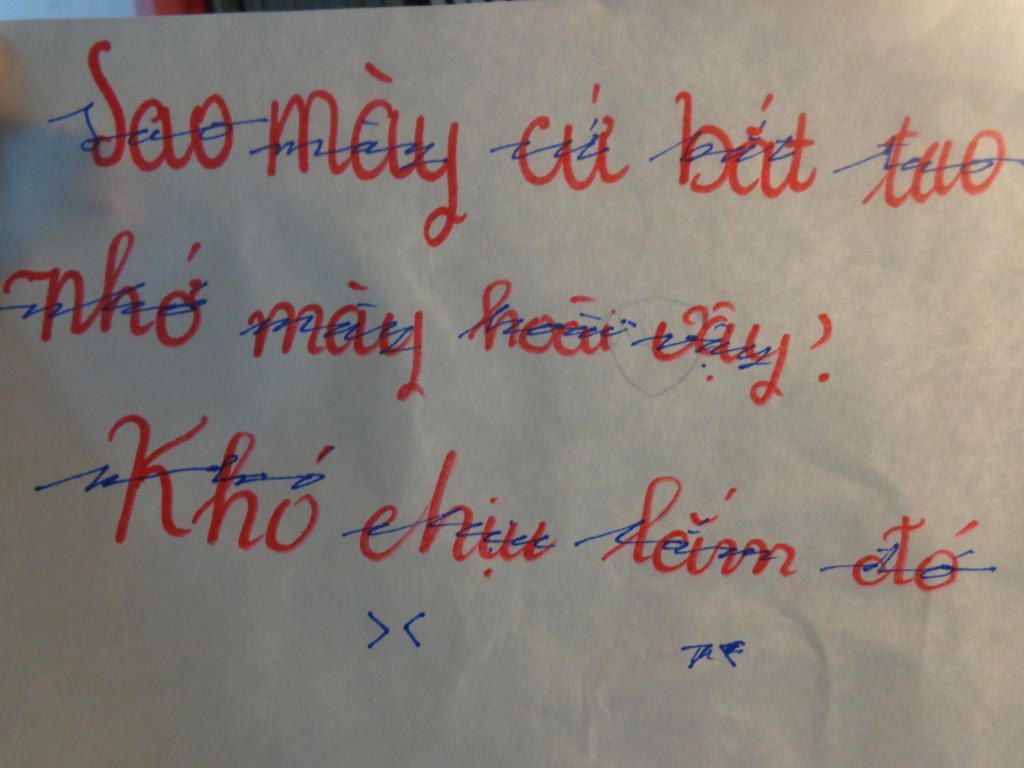 Sao mày cứ bắt tao
nhớ mày hoài vậy?
Khó chịu lắm đó
><